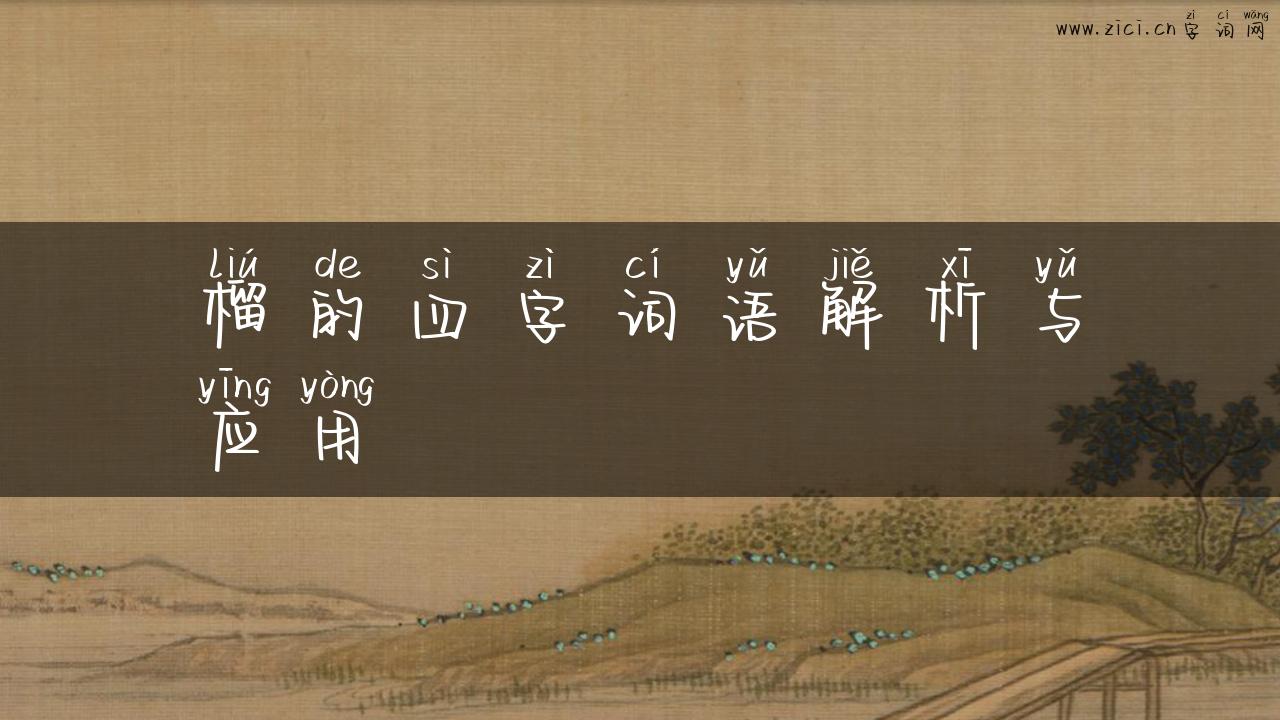 zì cí wǎng
www.zici.cn字词网
liú de sì zì cí yǔ jiě xī yǔ
榴的四字词语解析与
yīng yòng
应用